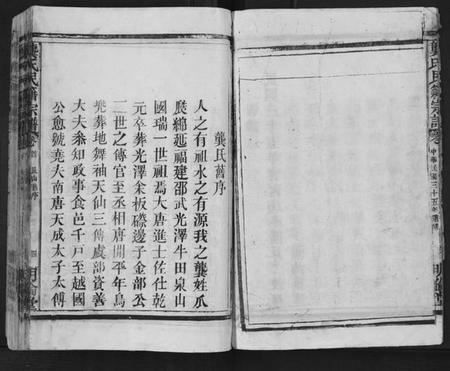 龔氏舊序
人之有祖水之有源我之龔姓瓜
瓞綿延福建邵武光澤牛田泉山
國瑞一世祖焉大唐進士佐仕乾
元卒葬光澤籴板礤邊子金部公
二世之傳官至丞相唐開平年烏
兠葬地舞袖天仙三傳虞部資善
大夫叅知政事食邑千戸至越國
公愈號堯夫南唐天成太子太傅
龔氏
宗譜
中華民國三十五年